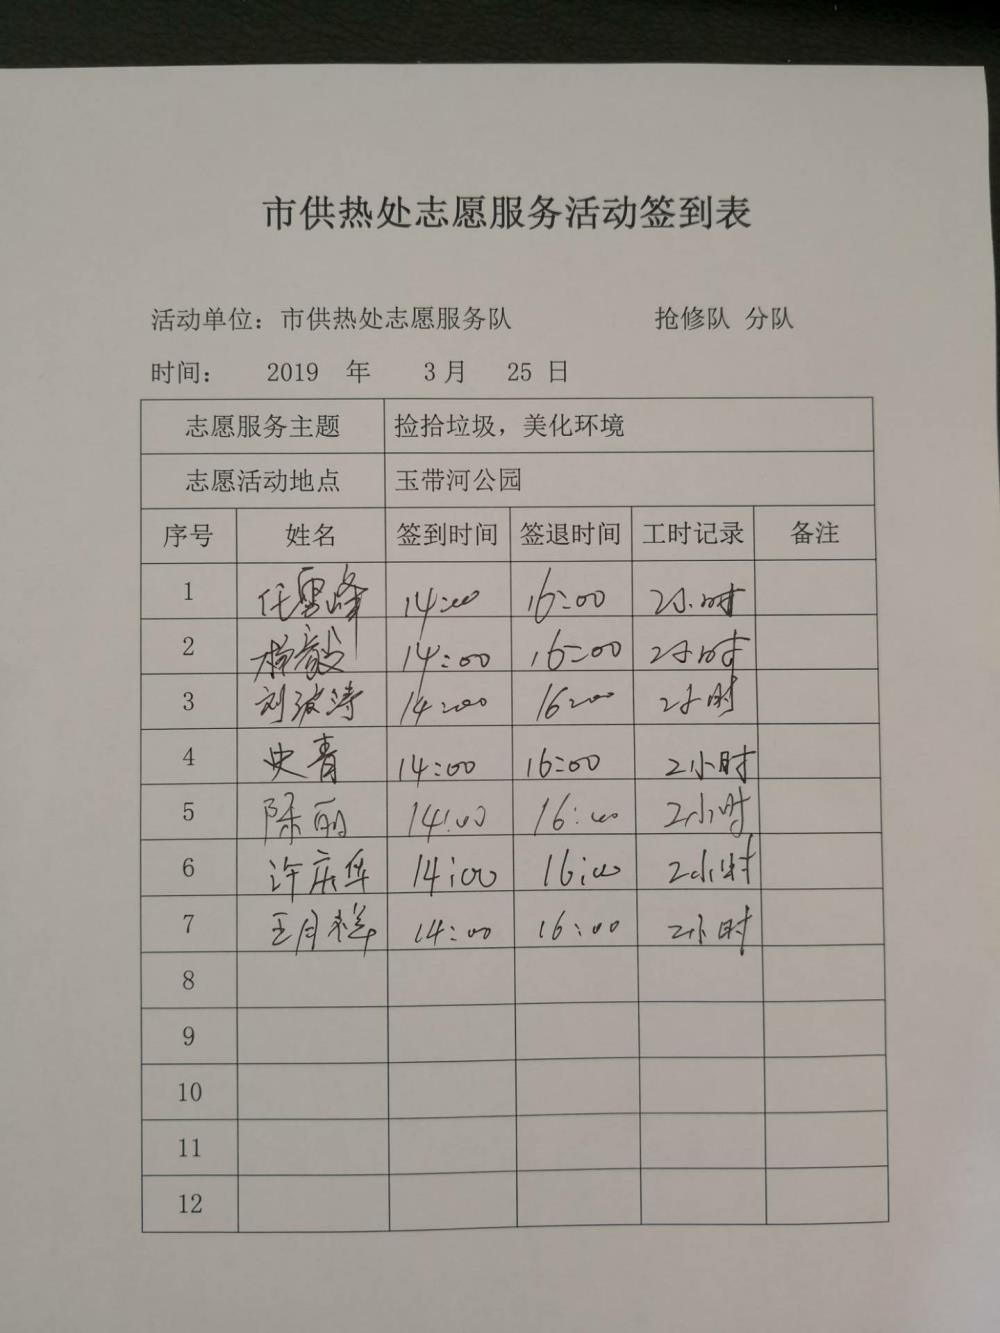 市供热处志愿服务活动签到表
活动单位：市供热处志愿服务队 抢修队 分队
时间： 2019 年 3月 25 日
志愿服务主题 捡拾垃圾，美化环境
志愿活动地点 玉带河公园
序号 姓名 签到时间 签退时间 工时记录 备注
1 任雪峰 14:00 16:00 2小时
2 杨毅 14:00 16:00 2小时
3 刘波涛 14:00 16:00 2小时
4 史青 14:00 16:00 2小时
5 陈丽 14:00 16:00 2小时
6 许庆华 14:00 16:00 2小时
7 王月祥 14:00 16:00 2小时
8
9
10
11
12